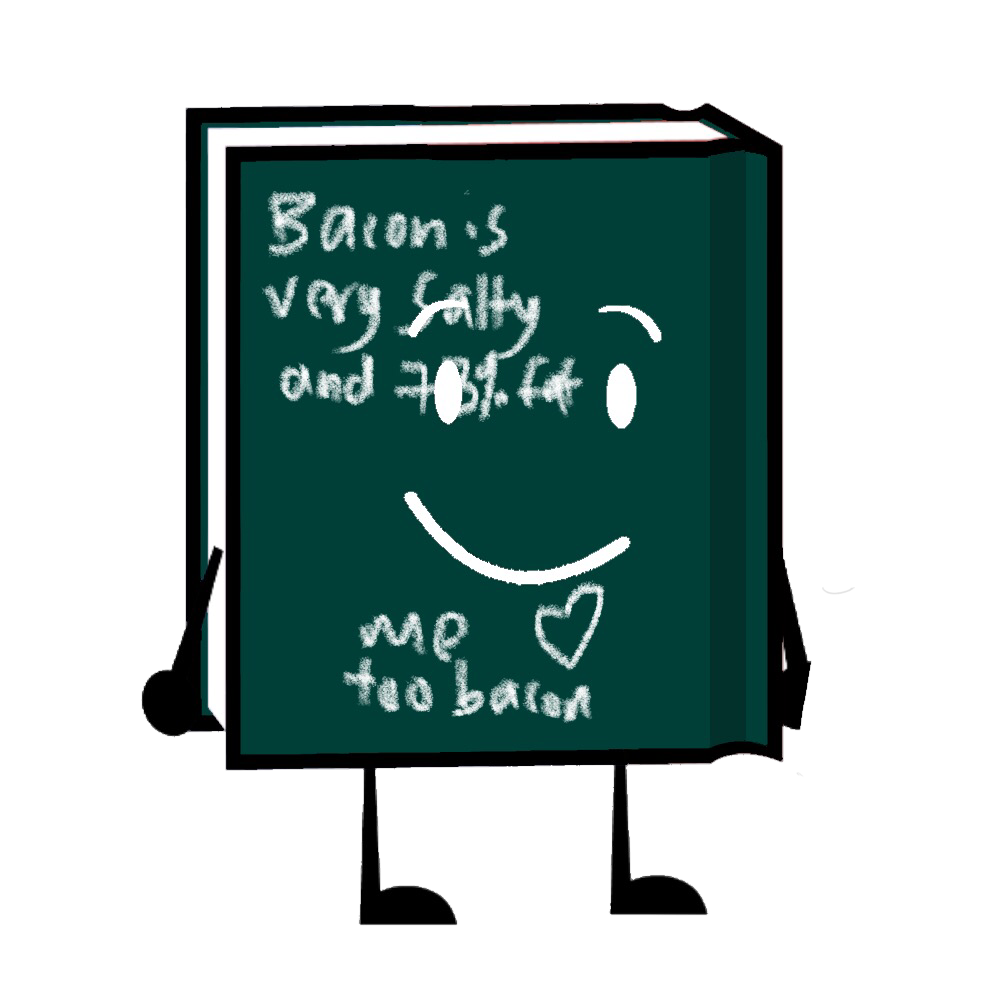 Bacon is
very salty
and 78% fat
me
too bacon